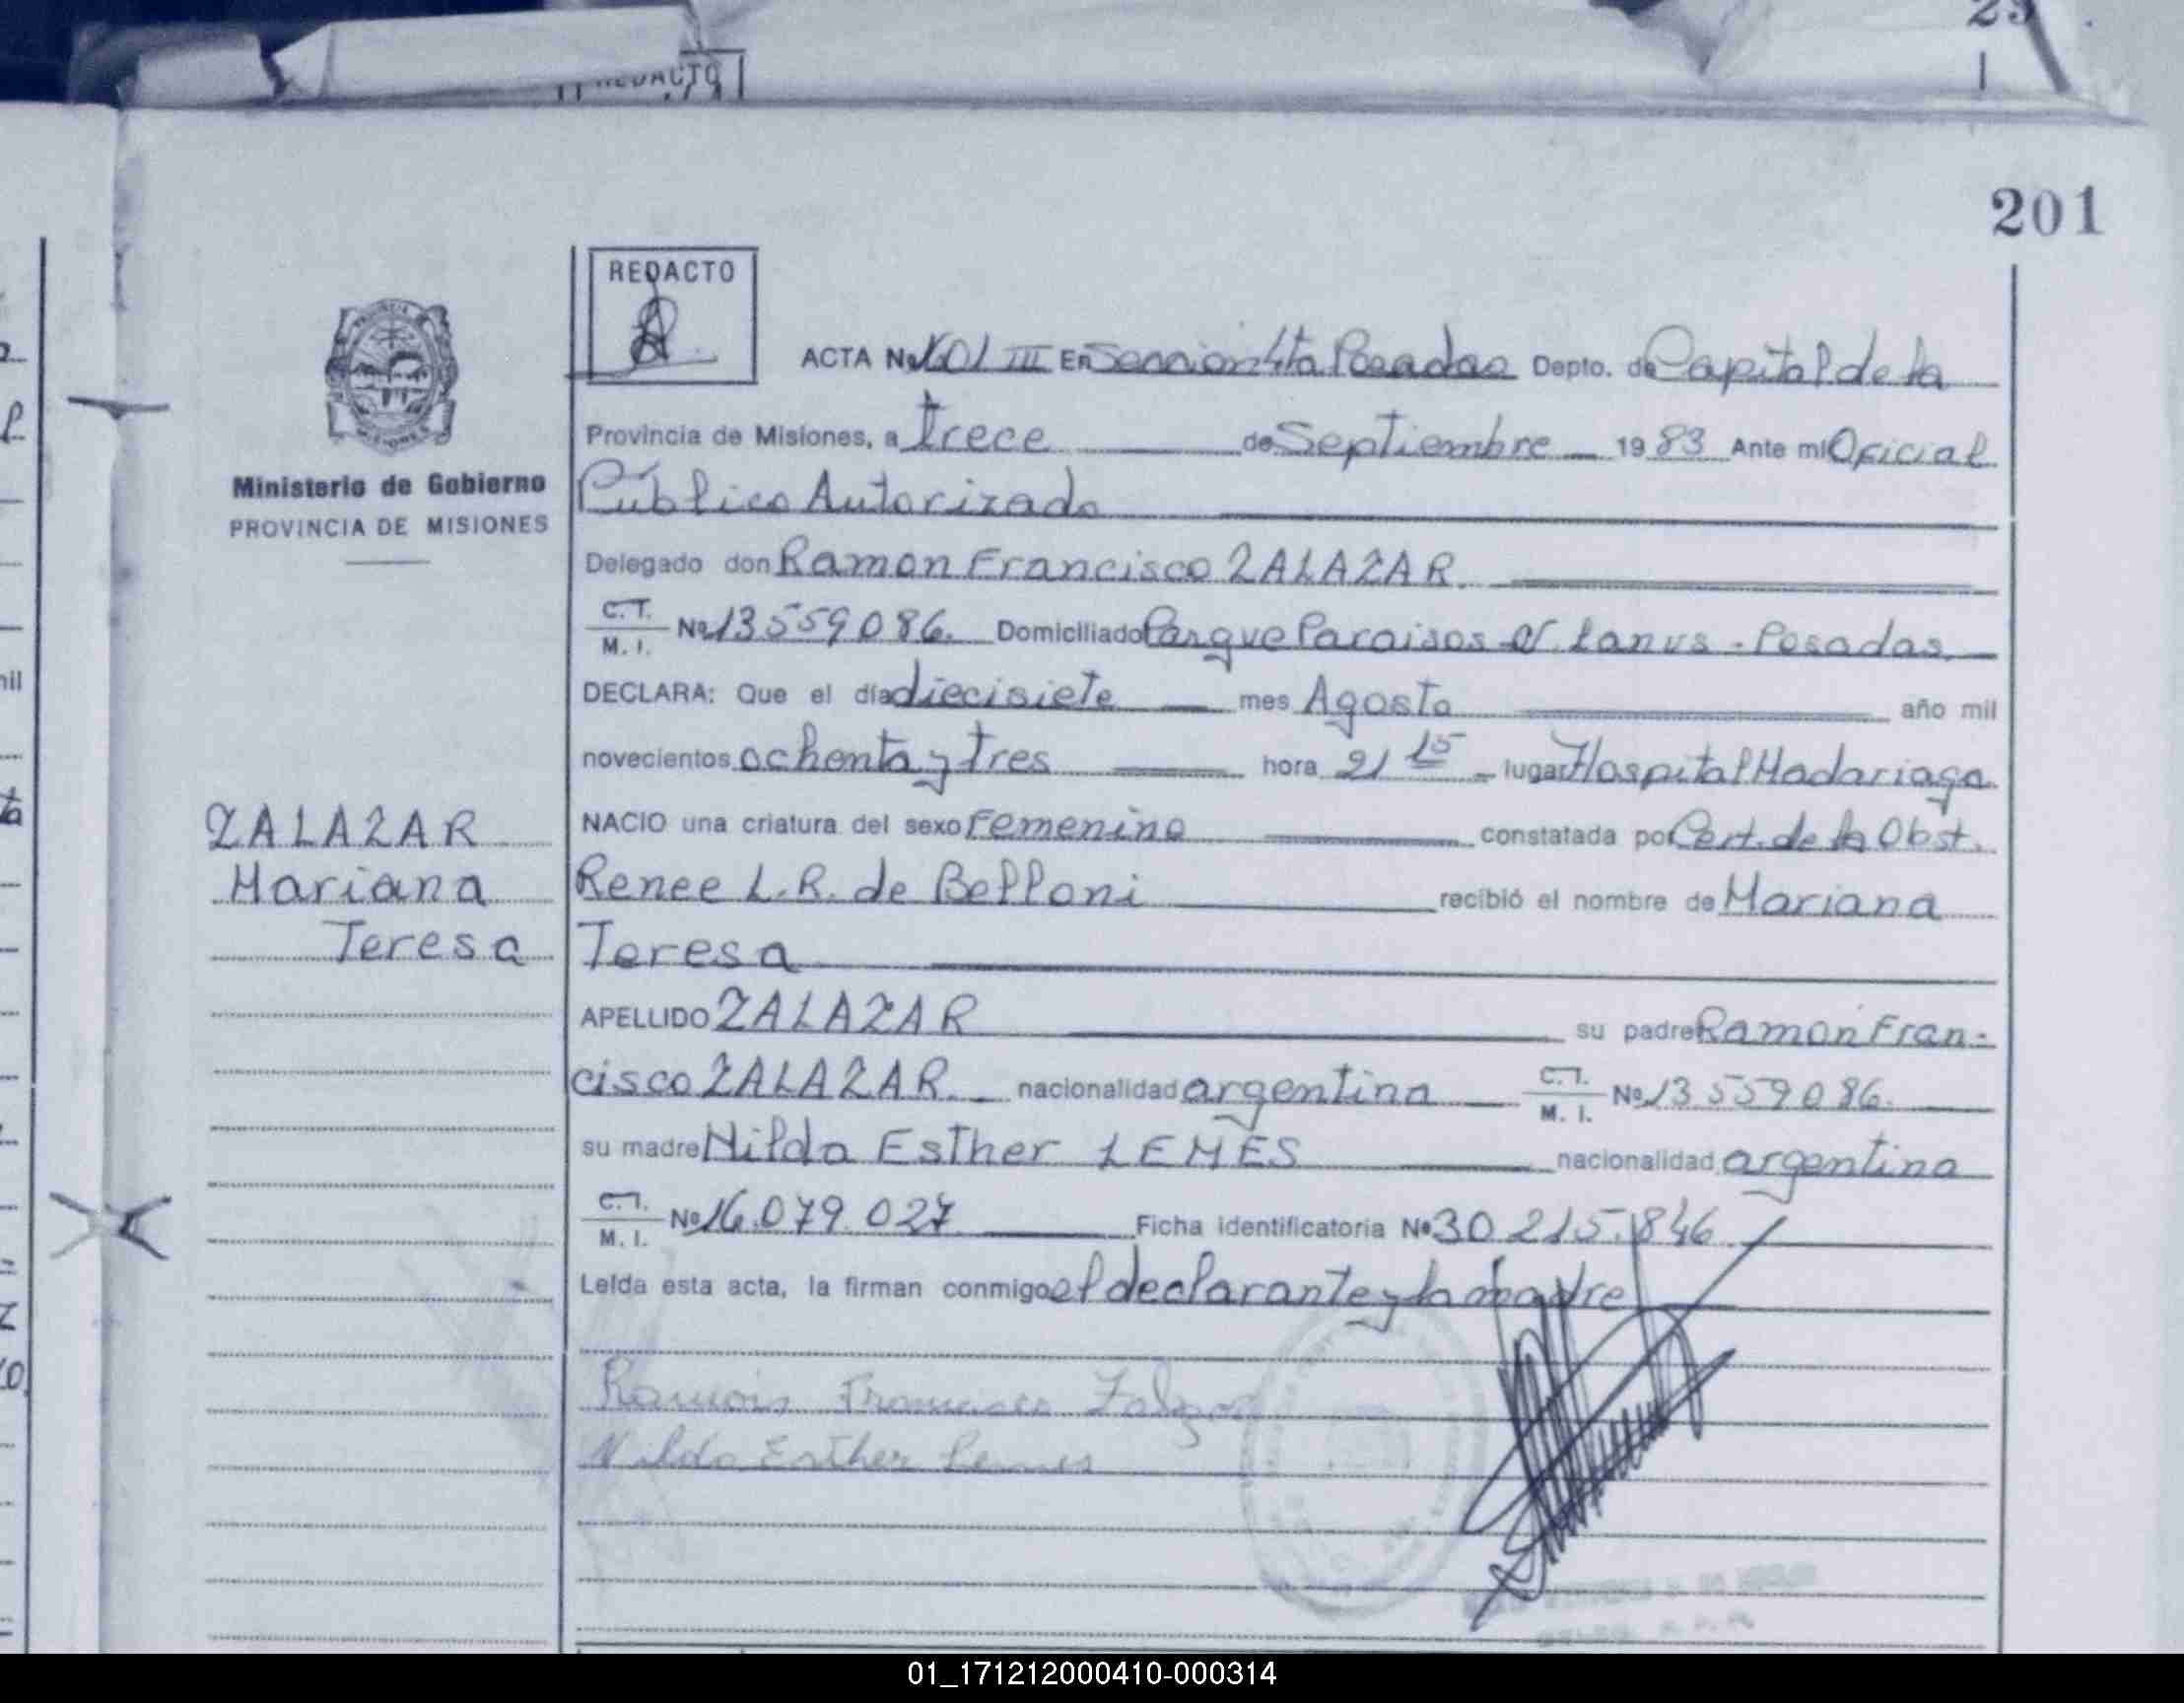 REDACTO
201
REDACTO
ACTA No 1601 III En Seccion 4ta Posadas Depto. de Capital de la
Provincia de Misiones, a trece de Septiembre 1983 Ante mi Oficial
Público Autorizado
Ministerio de Gobierno
PROVINCIA DE MISIONES
Delegado don Ramon Francisco ZALAZAR.
C.I.
M. I. No 13559086. Domiciliado Parque Paraisos V. Lanus - Posadas.
DECLARA: Que el día diecisiete mes Agosto año mil
novecientos ochenta y tres hora 21 15 lugar Hospital Madariaga
NACIO una criatura del sexo Femenino constatada por Cert. de la Obst.
Renee L.R. de Belloni recibió el nombre de Mariana
Teresa
ZALAZAR
Mariana
Teresa
APELLIDO ZALAZAR su padre Ramon Fran-
cisco ZALAZAR. nacionalidad argentina C.I.
M. I. No 13559086.
su madre Nilda Esther LEMES nacionalidad argentina
C.I.
M. I. No 16.079.027 Ficha identificatoria No 30.215.846
Leída esta acta, la firman conmigo el declarante y la madre
Ramon Francisco Zalazar
Nilda Esther Lemes
01_171212000410-000314